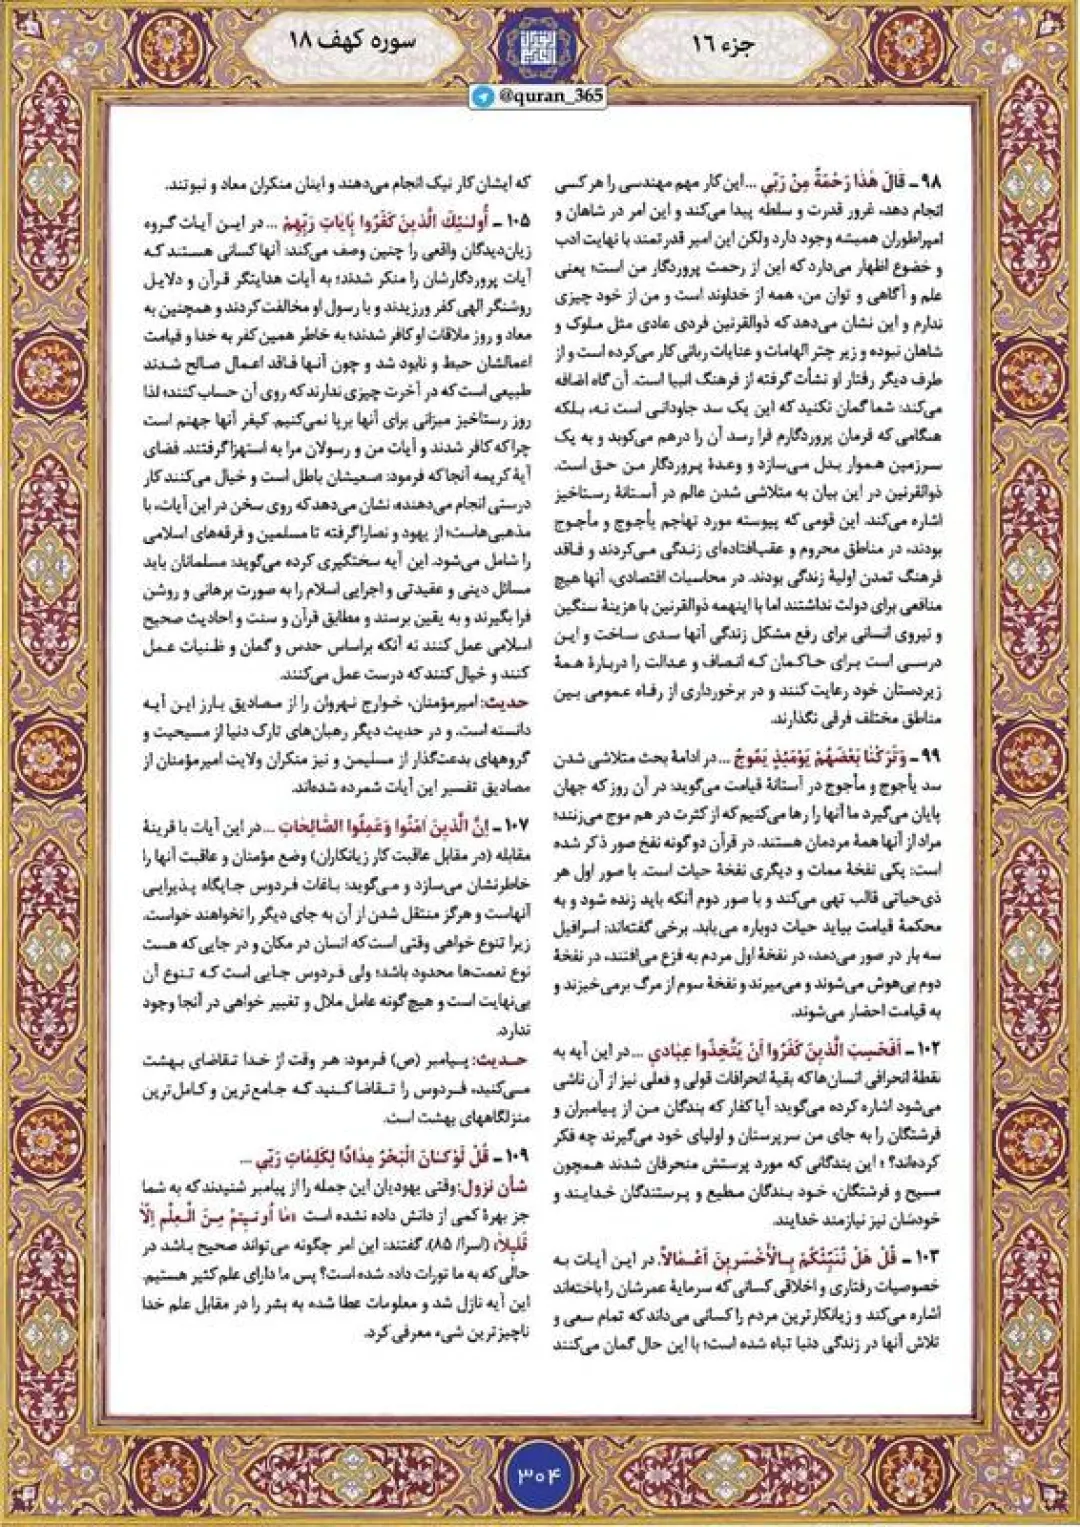 جزء ۱۶
سوره کهف ۱۸
@quran_365
۹۸ ـ قالَ هٰذا رَحْمَةٌ مِنْ رَبِّي ... این کار مهم مهندسی را هر کسی
انجام دهد، غرور قدرت و سلطه پیدا می‌کند و این امر در شاهان و
امپراطوران همیشه وجود دارد ولکن این امیر قدرتمند با نهایت ادب
و خضوع اظهار می‌دارد که این از رحمت پروردگار من است؛ یعنی
علم و آگاهی و توان من، همه از خداوند است و من از خود چیزی
ندارم و این نشان می‌دهد که ذوالقرنین فردی عادی مثل ملوک و
شاهان نبوده و زیر چتر الهامات و عنایات ربانی کار می‌کرده است و از
طرف دیگر رفتار او نشأت گرفته از فرهنگ انبیا است. آن گاه اضافه
می‌کند: شما گمان نکنید که این یک سد جاودانی است نه، بلکه
هنگامی که فرمان پروردگارم فرا رسد آن را درهم می‌کوبد و به یک
سرزمین هموار بدل می‌سازد و وعدهٔ پروردگار من حق است.
ذوالقرنین در این بیان به متلاشی شدن عالم در آستانهٔ رستاخیز
اشاره می‌کند. این قومی که پیوسته مورد تهاجم یأجوج و مأجوج
بودند، در مناطق محروم و عقب‌افتاده‌ای زندگی می‌کردند و فاقد
فرهنگ تمدن اولیهٔ زندگی بودند. در محاسبات اقتصادی، آنها هیچ
منافعی برای دولت نداشتند اما با اینهمه ذوالقرنین با هزینهٔ سنگین
و نیروی انسانی برای رفع مشکل زندگی آنها سدی ساخت و این
درسی است برای حاکمان که انصاف و عدالت را دربارهٔ همهٔ
زیردستان خود رعایت کنند و در برخورداری از رفاه عمومی بین
مناطق مختلف فرقی نگذارند.
۹۹ ـ وَتَرَكْنا بَعْضَهُمْ يَوْمَئِذٍ يَمُوجُ ... در ادامهٔ بحث متلاشی شدن
سد یأجوج و مأجوج در آستانهٔ قیامت می‌گوید: در آن روز که جهان
پایان می‌گیرد ما آنها را رها می‌کنیم که از کثرت در هم موج می‌زنند؛
مراد از آنها همهٔ مردمان هستند. در قرآن دو گونه نفخ صور ذکر شده
است: یکی نفخهٔ ممات و دیگری نفخهٔ حیات است. با صور اول هر
ذی‌حیاتی قالب تهی می‌کند و با صور دوم آنکه باید زنده شود و به
محکمهٔ قیامت بیاید حیات دوباره می‌یابد. برخی گفته‌اند: اسرافیل
سه بار در صور می‌دمد، در نفخهٔ اول مردم به فزع می‌افتند، در نفخهٔ
دوم بی‌هوش می‌شوند و می‌میرند و نفخهٔ سوم از مرگ برمی‌خیزند و
به قیامت احضار می‌شوند.
۱۰۲ ـ اَفَحَسِبَ الَّذينَ كَفَرُوا اَنْ يَتَّخِذُوا عِبادي ... در این آیه به
نقطهٔ انحرافی انسان‌ها که بقیهٔ انحرافات قولی و فعلی نیز از آن ناشی
می‌شود اشاره کرده می‌گوید: آیا کفار که بندگان من از پیامبران و
فرشتگان را به جای من سرپرستان و اولیای خود می‌گیرند چه فکر
کرده‌اند؟ ؛ این بندگانی که مورد پرستش منحرفان شدند همچون
مسیح و فرشتگان، خود بندگان مطیع و پرستندگان خدایند و
خودشان نیز نیازمند خدایند.
۱۰۳ ـ قُلْ هَلْ نُنَبِّئُكُمْ بِالْأَخْسَرينَ اَعْمالاً. در این آیات به
خصوصیات رفتاری و اخلاقی کسانی که سرمایهٔ عمرشان را باخته‌اند
اشاره می‌کند و زیانکارترین مردم را کسانی می‌داند که تمام سعی و
تلاش آنها در زندگی دنیا تباه شده است؛ با این حال گمان می‌کنند
که ایشان کار نیک انجام می‌دهند و اینان منکران معاد و نبوتند.
۱۰۵ ـ أُولٰئِكَ الَّذينَ كَفَرُوا بِآياتِ رَبِّهِمْ ... در این آیات گروه
زیان‌دیدگان واقعی را چنین وصف می‌کند: آنها کسانی هستند که
آیات پروردگارشان را منکر شدند؛ به آیات هدایتگر قرآن و دلایل
روشنگر الهی کفر ورزیدند و با رسول او مخالفت کردند و همچنین به
معاد و روز ملاقات او کافر شدند؛ به خاطر همین کفر به خدا و قیامت
اعمالشان حبط و نابود شد و چون آنها فاقد اعمال صالح شدند
طبیعی است که در آخرت چیزی ندارند که روی آن حساب کنند؛ لذا
روز رستاخیز میزانی برای آنها برپا نمی‌کنیم. کیفر آنها جهنم است
چرا که کافر شدند و آیات من و رسولان مرا به استهزا گرفتند. فضای
آیهٔ کریمه آنجا که فرمود: «سعیشان باطل است و خیال می‌کنند کار
درستی انجام می‌دهند»، نشان می‌دهد که روی سخن در این آیات، با
مذهبی‌هاست؛ از یهود و نصارا گرفته تا مسلمین و فرقه‌های اسلامی
را شامل می‌شود. این آیه سختگیری کرده می‌گوید: مسلمانان باید
مسائل دینی و عقیدتی و اجرایی اسلام را به صورت برهانی و روشن
فرا بگیرند و به یقین برسند و مطابق قرآن و سنت و احادیث صحیح
اسلامی عمل کنند نه آنکه براساس حدس و گمان و ظنیات عمل
کنند و خیال کنند که درست عمل می‌کنند.
حدیث: امیرمؤمنان، خوارج نهروان را از مصادیق بارز این آیه
دانسته است. و در حدیث دیگر رهبان‌های تارک دنیا از مسیحیت و
گروههای بدعت‌گذار از مسلیمن و نیز منکران ولایت امیرمؤمنان از
مصادیق تفسیر این آیات شمرده شده‌اند.
۱۰۷ ـ اِنَّ الَّذينَ آمَنُوا وَعَمِلُوا الصّالِحاتِ ... در این آیات با قرینهٔ
مقابله (در مقابل عاقبت کار زیانکاران) وضع مؤمنان و عاقبت آنها را
خاطرنشان می‌سازد و می‌گوید: باغات فردوس جایگاه پذیرایی
آنهاست و هرگز منتقل شدن از آن به جای دیگر را نخواهند خواست.
زیرا تنوع خواهی وقتی است که انسان در مکان و در جایی که هست
نوع نعمت‌ها محدود باشد؛ ولی فردوس جایی است که تنوع آن
بی‌نهایت است و هیچ گونه عامل ملال و تغییر خواهی در آنجا وجود
ندارد.
حدیث: پیامبر (ص) فرمود: هر وقت از خدا تقاضای بهشت
می‌کنید، فردوس را تقاضا کنید که جامع‌ترین و کامل‌ترین
منزلگاههای بهشت است.
۱۰۹ ـ قُلْ لَوْ كانَ الْبَحْرُ مِدادًا لِكَلِماتِ رَبّي ...
شأن نزول: وقتی یهودیان این جمله را از پیامبر شنیدند که به شما
جز بهرهٔ کمی از دانش داده نشده است «ما اُوتيتُمْ مِنَ الْعِلْمِ اِلّا
قَليلاً» (اسرا/ ۸۵). گفتند: این امر چگونه می‌تواند صحیح باشد در
حالی که به ما تورات داده شده است؟ پس ما دارای علم کثیر هستیم.
این آیه نازل شد و معلومات عطا شده به بشر را در مقابل علم خدا
ناچیزترین شیء معرفی کرد.
۳۰۴